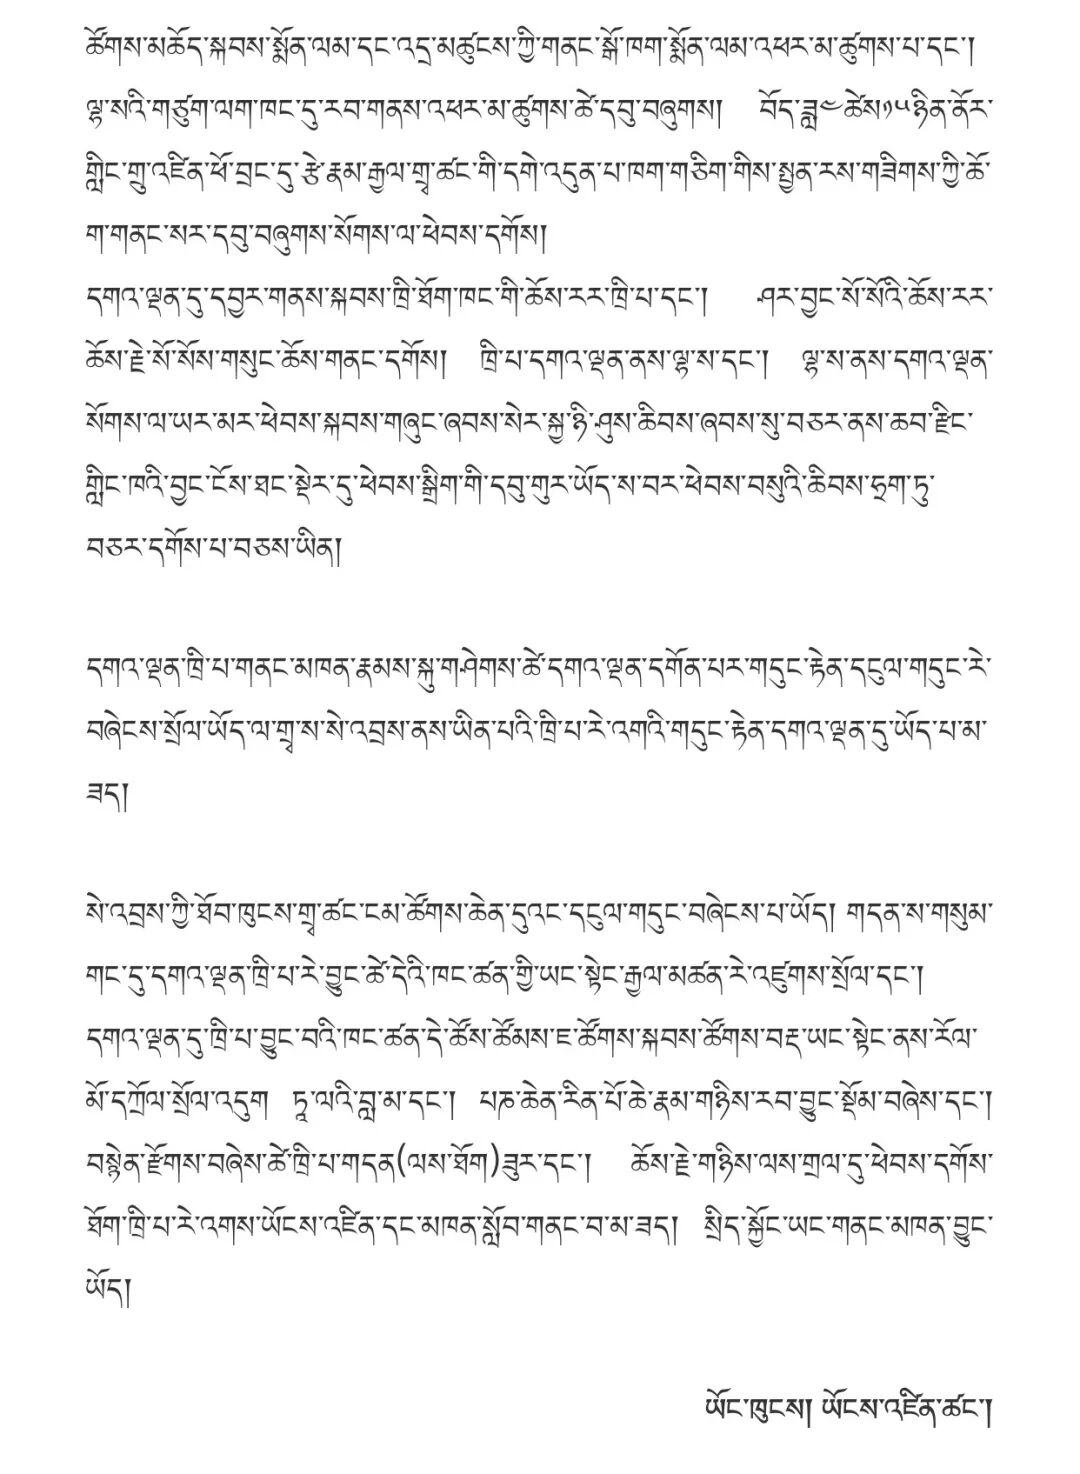 ཚོགས་མཆོད་སྐབས་སྨོན་ལམ་དང་འདྲ་མཚུངས་ཀྱི་གནང་སྒོ་ཁག་སྨོན་ལམ་འཕར་མ་ཚུགས་པ་དང་།
ལྷ་སའི་གཙུག་ལག་ཁང་དུ་རབ་གནས་འཕར་མ་ཚུགས་ཚེ་དབུ་བཞུགས། བོད་ཟླ༤ཚེས༡༥ཉིན་ནོར་
གླིང་གྲུ་འཛིན་ཕོ་བྲང་དུ་རྩེ་རྣམ་རྒྱལ་གྲྭ་ཚང་གི་དགེ་འདུན་པ་ཁག་གཅིག་གིས་སྤྱན་རས་གཟིགས་ཀྱི་ཆོ་
ག་གནང་སར་དབུ་བཞུགས་སོགས་ལ་ཕེབས་དགོས།
དགའ་ལྡན་དུ་དབྱར་གནས་སྐབས་ཁྲི་ཐོག་ཁང་གི་ཆོས་རར་ཁྲི་པ་དང་། ཤར་བྱང་སོ་སོའི་ཆོས་རར་
ཆོས་རྗེ་སོ་སོས་གསུང་ཆོས་གནང་དགོས། ཁྲི་པ་དགའ་ལྡན་ནས་ལྷ་ས་དང་། ལྷ་ས་ནས་དགའ་ལྡན་
སོགས་ལ་ཡར་མར་ཕེབས་སྐབས་གཞུང་ཞབས་སེར་སྐྱ་ཉི་ཤུས་ཆིབས་ཞབས་སུ་བཅར་ནས་ཆབ་རྫིང་
གླིང་ཁའི་བྱང་ངོས་ཐང་སྡེར་དུ་ཕེབས་སྒྲིག་གི་དབུ་གུར་ཡོད་ས་བར་ཕེབས་བསུའི་ཆིབས་ཧྲག་ཏུ་
བཅར་དགོས་པ་བཅས་ཡིན།
དགའ་ལྡན་ཁྲི་པ་གནང་མཁན་རྣམས་སྐུ་གཤེགས་ཚེ་དགའ་ལྡན་དགོན་པར་གདུང་རྟེན་དངུལ་གདུང་རེ་
བཞེངས་སྲོལ་ཡོད་ལ་གྲྭ་ས་སེ་འབྲས་ནས་ཡིན་པའི་ཁྲི་པ་རེ་འགའི་གདུང་རྟེན་དགའ་ལྡན་དུ་ཡོད་པ་མ་
ཟད།
སེ་འབྲས་ཀྱི་ཐོབ་ཁུངས་གྲྭ་ཚང་ངམ་ཚོགས་ཆེན་དུའང་དངུལ་གདུང་བཞེངས་པ་ཡོད། གདན་ས་གསུམ་
གང་དུ་དགའ་ལྡན་ཁྲི་པ་རེ་བྱུང་ཚེ་དེའི་ཁང་ཚན་གྱི་ཡང་སྟེང་རྒྱལ་མཚན་རེ་འཛུགས་སྲོལ་དང་།
དགའ་ལྡན་དུ་ཁྲི་པ་བྱུང་བའི་ཁང་ཚན་དེ་ཚོས་ཚོམས་ཇ་ཚོགས་སྐབས་ཚོགས་བརྡ་ཡང་སྟེང་ནས་རོལ་
མོ་དཀྲོལ་སྲོལ་འདུག ཏཱ་ལའི་བླ་མ་དང་། པཎ་ཆེན་རིན་པོ་ཆེ་རྣམ་གཉིས་རབ་བྱུང་སྡོམ་བཞེས་དང་།
བསྙེན་རྫོགས་བཞེས་ཚེ་ཁྲི་པ་གདན(ལས་ཐོག)ཟུར་དང་། ཆོས་རྗེ་གཉིས་ལས་གྲལ་དུ་ཕེབས་དགོས་
ཐོག་ཁྲི་པ་རེ་འགས་ཡོངས་འཛིན་དང་མཁན་སློབ་གནང་བ་མ་ཟད། སྲིད་སྐྱོང་ཡང་གནང་མཁན་བྱུང་
ཡོད།
ཡོང་ཁུངས། ཡོངས་འཛིན་ཚང་།